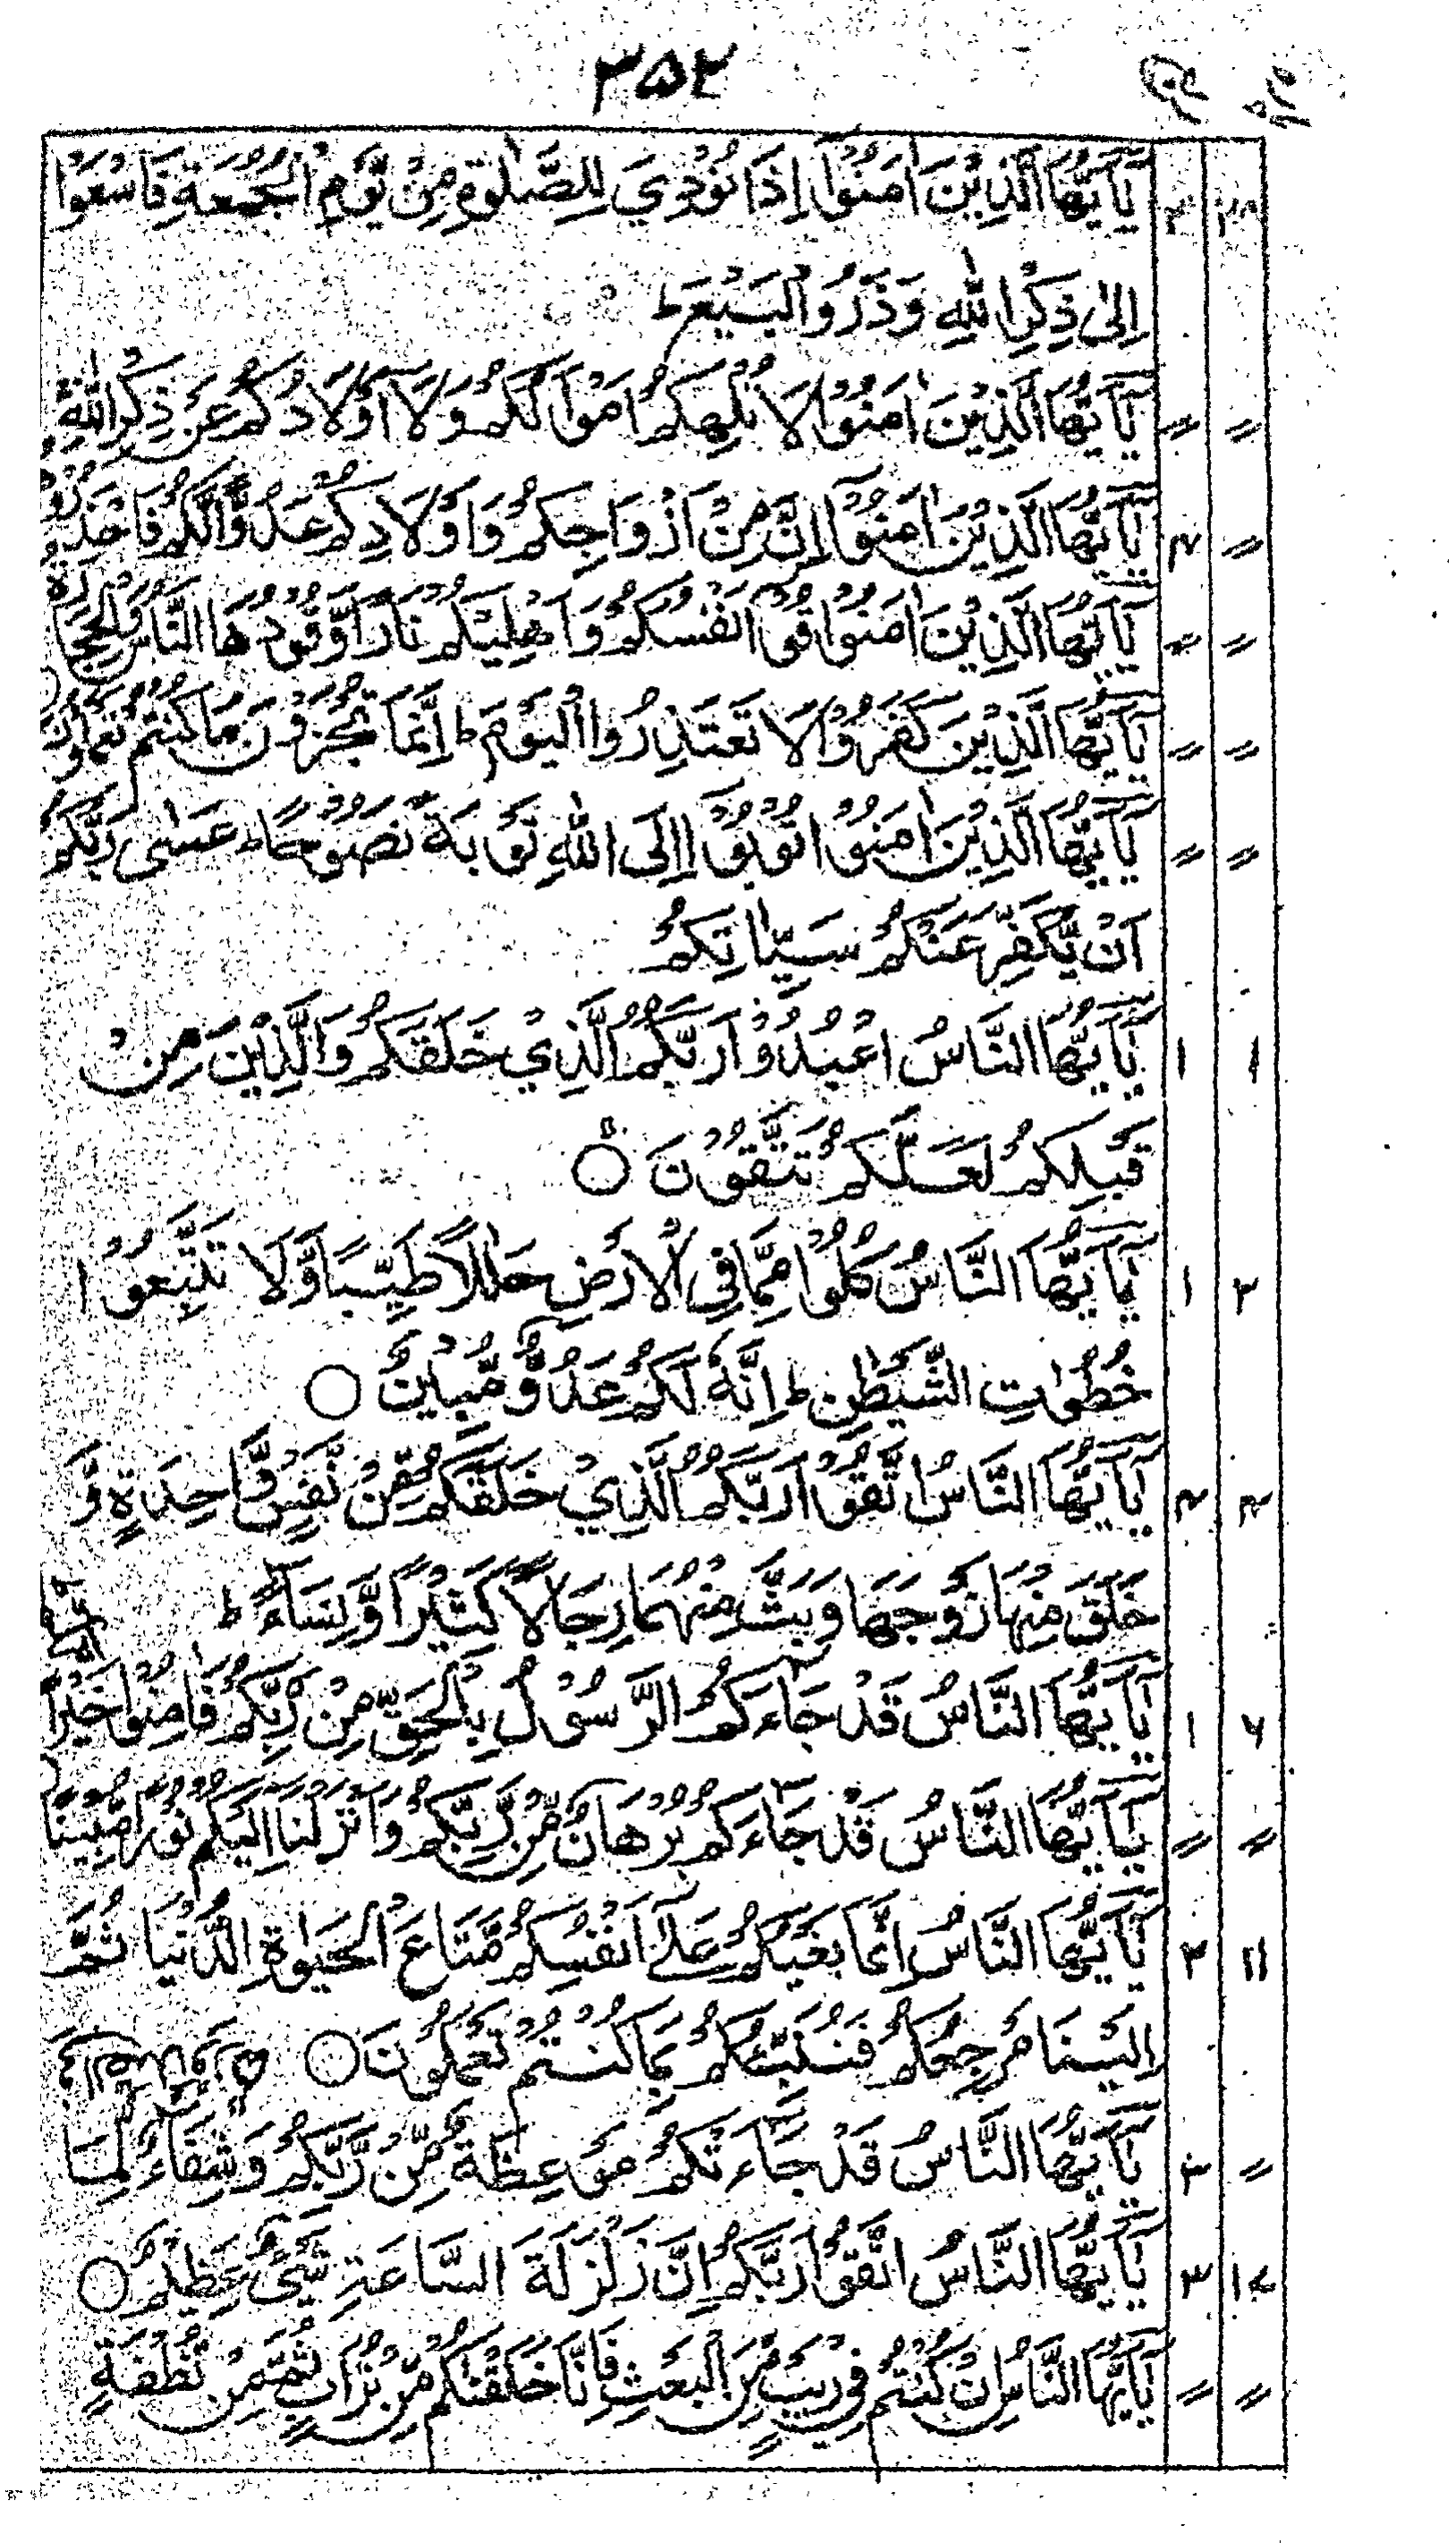 ۳۵۲
يٰۤاَيُّهَا الَّذِيْنَ اٰمَنُوْۤا اِذَا نُوْدِيَ لِلصَّلٰوةِ مِنْ يَّوْمِ الْجُمُعَةِ فَاسْعَوْا
اِلٰى ذِكْرِ اللّٰهِ وَذَرُوا الْبَيْعَ ط
〃 〃 يٰۤاَيُّهَا الَّذِيْنَ اٰمَنُوْا لَا تُلْهِكُمْ اَمْوَالُكُمْ وَلَاۤ اَوْلَادُكُمْ عَنْ ذِكْرِ اللّٰهِ
〃 ۴ يٰۤاَيُّهَا الَّذِيْنَ اٰمَنُوْۤا اِنَّ مِنْ اَزْوَاجِكُمْ وَاَوْلَادِكُمْ عَدُوًّا لَّكُمْ فَاحْذَرُوْ
〃 〃 يٰۤاَيُّهَا الَّذِيْنَ اٰمَنُوْا قُوْۤا اَنْفُسَكُمْ وَاَهْلِيْكُمْ نَارًا وَّقُوْدُهَا النَّاسُ وَالْحِجَارَةُ
〃 〃 يٰۤاَيُّهَا الَّذِيْنَ كَفَرُوْا لَا تَعْتَذِرُوا الْيَوْمَ ط اِنَّمَا تُجْزَوْنَ مَا كُنْتُمْ تَعْمَلُوْنَ
〃 〃 يٰۤاَيُّهَا الَّذِيْنَ اٰمَنُوْا تُوْبُوْۤا اِلَى اللّٰهِ تَوْبَةً نَّصُوْحًا ط عَسٰى رَبُّكُمْ
اَنْ يُّكَفِّرَ عَنْكُمْ سَيِّاٰتِكُمْ
۱ ۱ يٰۤاَيُّهَا النَّاسُ اعْبُدُوْا رَبَّكُمُ الَّذِيْ خَلَقَكُمْ وَالَّذِيْنَ مِنْ
قَبْلِكُمْ لَعَلَّكُمْ تَتَّقُوْنَ ○
۲ ۱ يٰۤاَيُّهَا النَّاسُ كُلُوْا مِمَّا فِى الْاَرْضِ حَلٰلًا طَيِّبًا وَّلَا تَتَّبِعُوْا
خُطُوٰتِ الشَّيْطٰنِ ط اِنَّهٗ لَكُمْ عَدُوٌّ مُّبِيْنٌ ○
۴ ۴ يٰۤاَيُّهَا النَّاسُ اتَّقُوْا رَبَّكُمُ الَّذِيْ خَلَقَكُمْ مِّنْ نَّفْسٍ وَّاحِدَةٍ وَّ
خَلَقَ مِنْهَا زَوْجَهَا وَبَثَّ مِنْهُمَا رِجَالًا كَثِيْرًا وَّنِسَآءً ط
۶ ۱ يٰۤاَيُّهَا النَّاسُ قَدْ جَآءَكُمُ الرَّسُوْلُ بِالْحَقِّ مِنْ رَّبِّكُمْ فَاٰمِنُوْا خَيْرًا
〃 〃 يٰۤاَيُّهَا النَّاسُ قَدْ جَآءَكُمْ بُرْهَانٌ مِّنْ رَّبِّكُمْ وَاَنْزَلْنَاۤ اِلَيْكُمْ نُوْرًا مُّبِيْنًا
۱۱ ۳ يٰۤاَيُّهَا النَّاسُ اِنَّمَا بَغْيُكُمْ عَلٰۤى اَنْفُسِكُمْ مَّتَاعَ الْحَيٰوةِ الدُّنْيَا ثُمَّ
اِلَيْنَا مَرْجِعُكُمْ فَنُنَبِّئُكُمْ بِمَا كُنْتُمْ تَعْمَلُوْنَ ○
〃 ۳ يٰۤاَيُّهَا النَّاسُ قَدْ جَآءَتْكُمْ مَّوْعِظَةٌ مِّنْ رَّبِّكُمْ وَشِفَآءٌ لِّمَا
۱۷ ۳ يٰۤاَيُّهَا النَّاسُ اتَّقُوْا رَبَّكُمْ اِنَّ زَلْزَلَةَ السَّاعَةِ شَيْءٌ عَظِيْمٌ ○
〃 〃 يٰۤاَيُّهَا النَّاسُ اِنْ كُنْتُمْ فِيْ رَيْبٍ مِّنَ الْبَعْثِ فَاِنَّا خَلَقْنٰكُمْ مِّنْ تُرَابٍ ثُمَّ مِنْ نُّطْفَةٍ